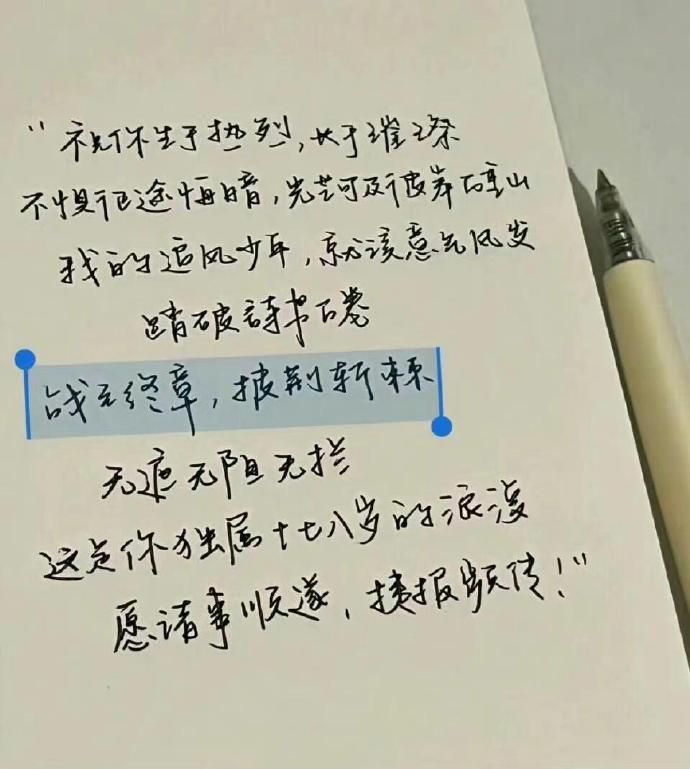 “祝你生于热烈，长于璀璨
不惧征途晦暗，光芒可及彼岸碎山
我的追风少年，就该意气风发
踏破詩书万卷
战至终章，披荆斩棘
无遮无阻无拦
这是你独属十七八岁的浪漫
愿诸事顺遂，捷报频传！”